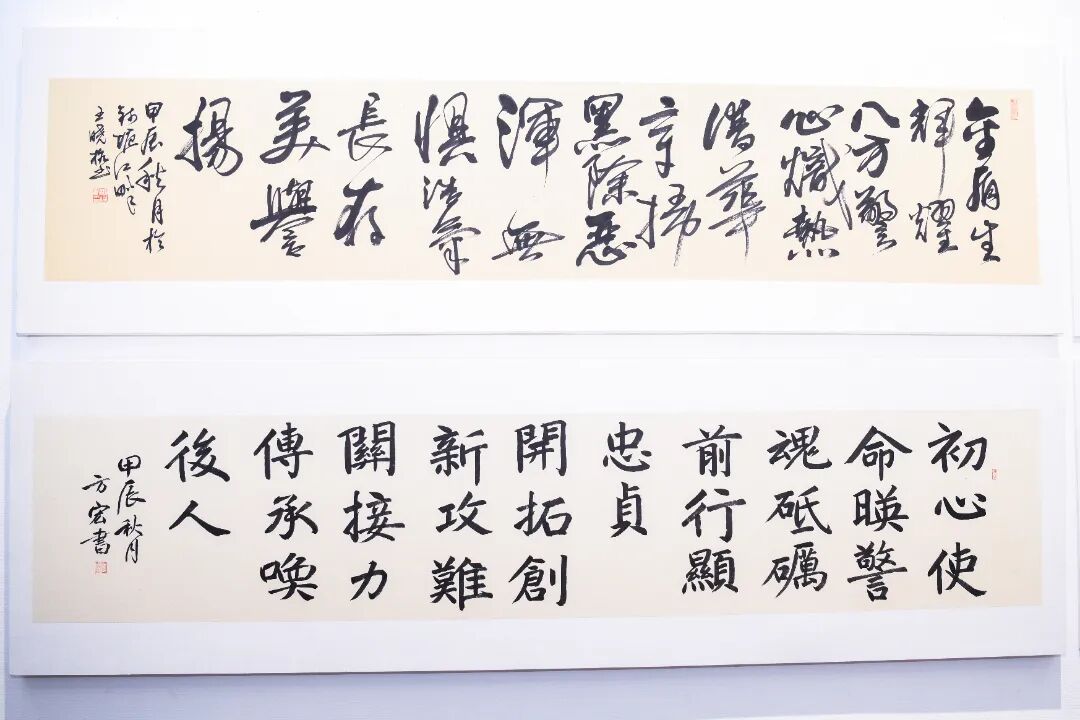 金盾生
輝耀
八方警
心熾熱
譜華
章掃
黑除惡
渾無
惧浩氣
長存
美譽
揚
甲辰秋月於
錢塘江畔
王曉
初心使
命暎警
魂砥礪
前行顯
忠貞
開拓創
新攻難
關接力
傳承喚
後人
甲辰秋月
方宏書